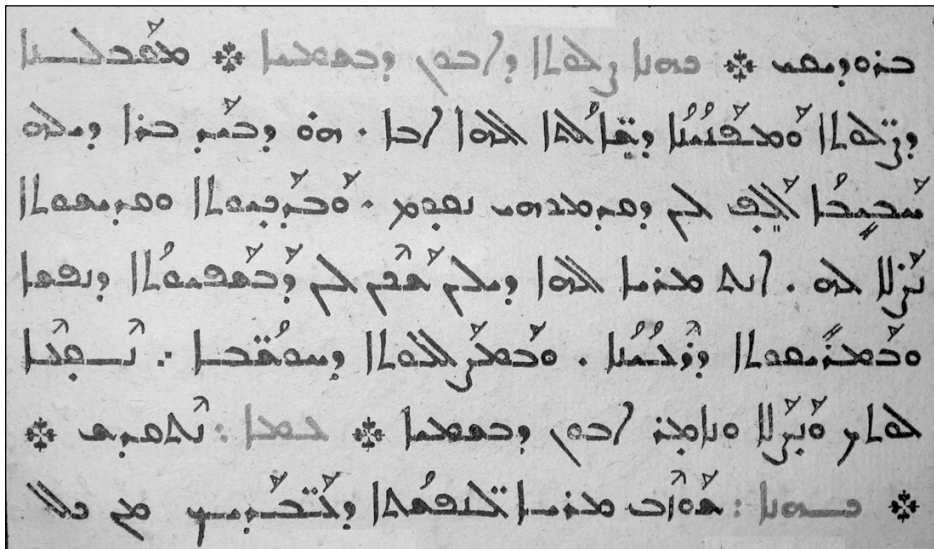 ※ ܟܗܢܐ ܨܠܘܬܐ ܕܐܒܘܢ ܕܒܫܡܝܐ ※ ܡܩܰܒܠܢܐ
ܕܨ̈ܠܘܬܐ ܘܰܡܦܰܢܝܳܢܳܐ ܕܫܶܐ̈ܠܳܬܐ ܐܠܗܐ ܐܒܐ ܂ ܗ̇ܘ ܕܒܝܰܕ ܒܪܐ ܕܝܠܗ
ܚܰܒܝܒܳܐ ܐܰܠܶܦ ܠܢ ܕܩܕܡܘܗܝ ܢܩܘܡ ܂ ܘܰܒܕܰܟܝܘܬܐ ܘܩܕܝܫܘܬܐ
ܢܰܨܰܠܐ ܠܗ ܂ ܐܢܬ ܡܪܝܐ ܐܠܗܐ ܕܝܠܢ ܠܢ ܕܰܒܫܰܦܝܘܬܐ ܕܢܦܫܐ
ܘܰܒܡܪܝܩܘܬܐ ܕܪܶܥܝܳܢܐ ܂ ܘܒܰܡܨܰܠܠܘܬܐ ܕܚܘܫܳܒ̈ܐ ܂
ܠܘܬܟ ܘܰܢܨܰܠܐ ܘܢܐܡܪ ܐܒܘܢ ܕܒܫܡܝܐ ※ ܥܡܐ : ܢܶܬܩܕܫ ※
※ ܟܗܢܐ : ܫܰܘܙܶܒ ܡܪܝܐ ܠܢܦ̈ܫܳܬܐ ܕܥܰܒ̈ܕܰܝܟ ܡܢ ܟܠ